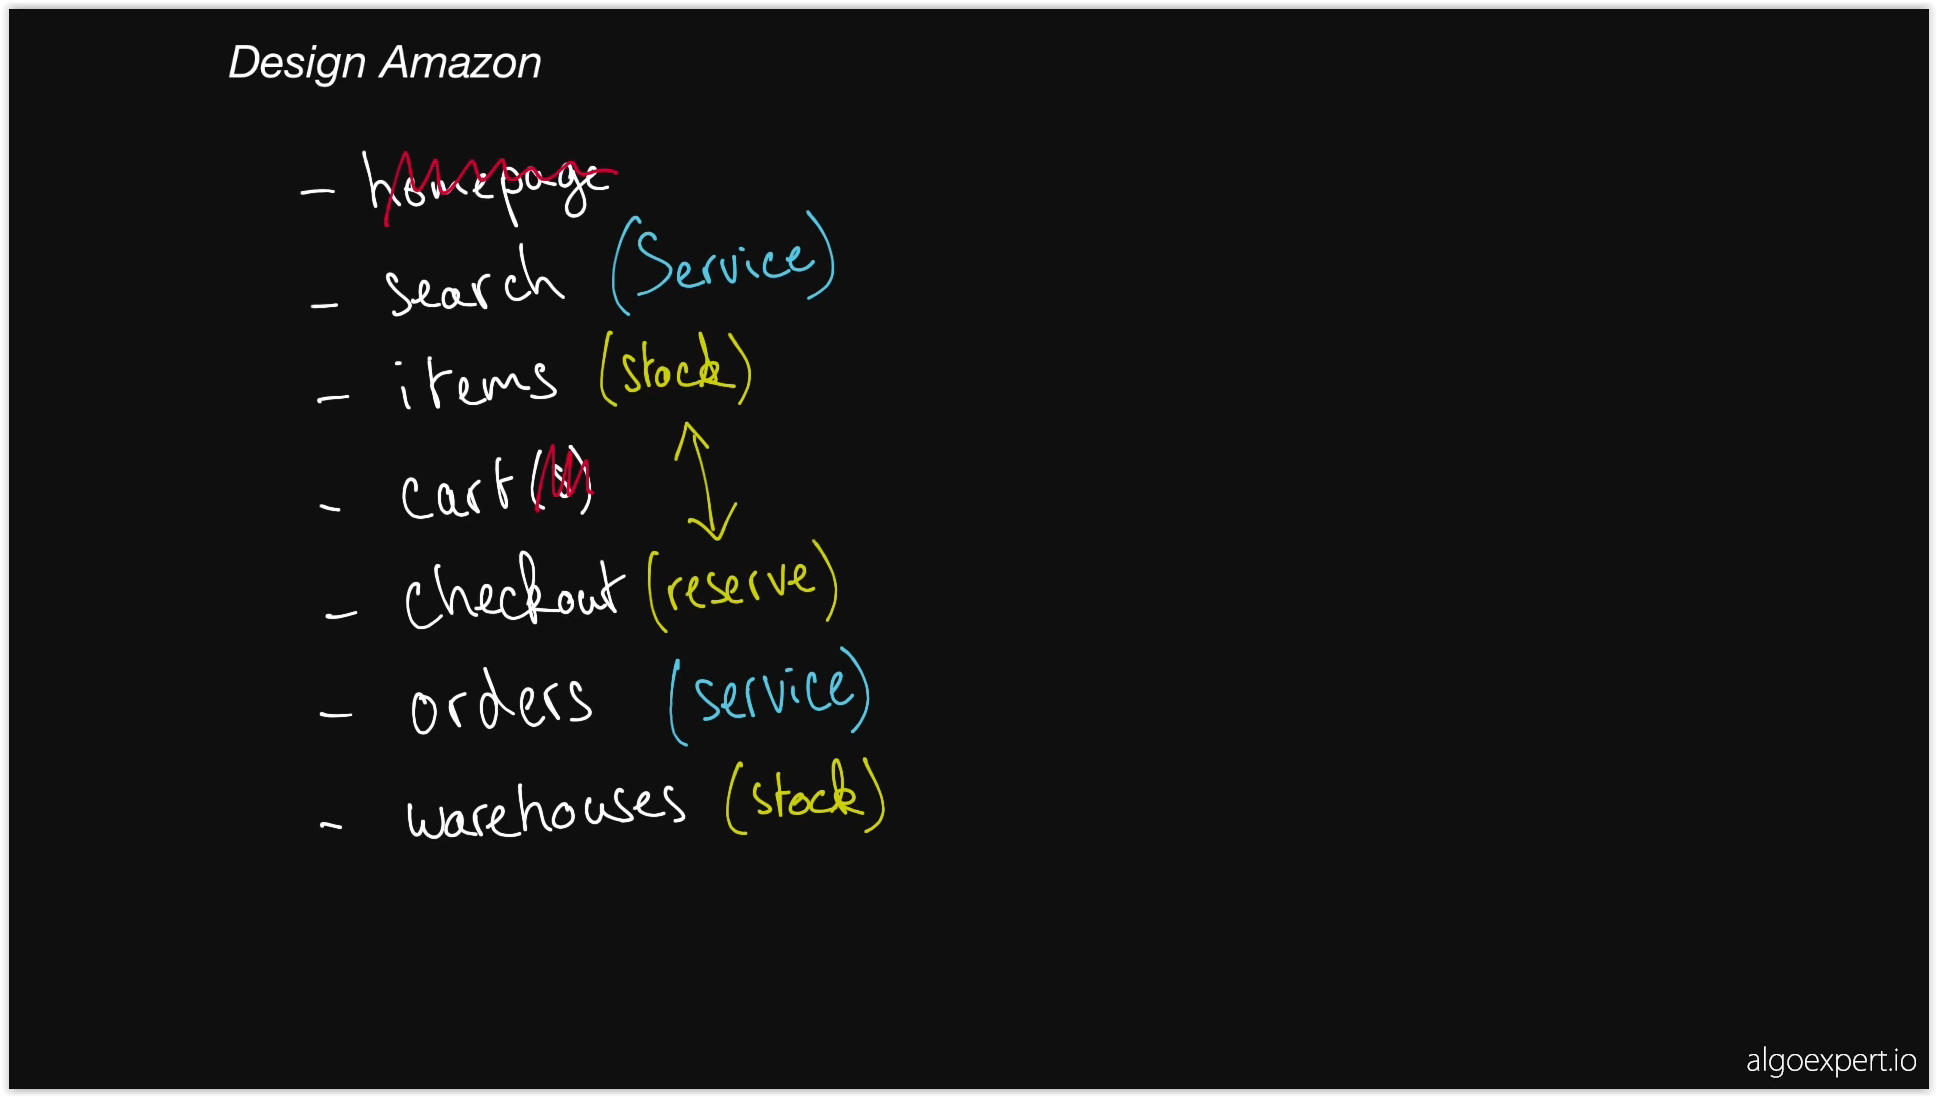 Design Amazon
- homepage
- search (Service)
- items (stock)
- cart(s)
- checkout (reserve)
- orders (service)
- warehouses (stock)
algoexpert.io